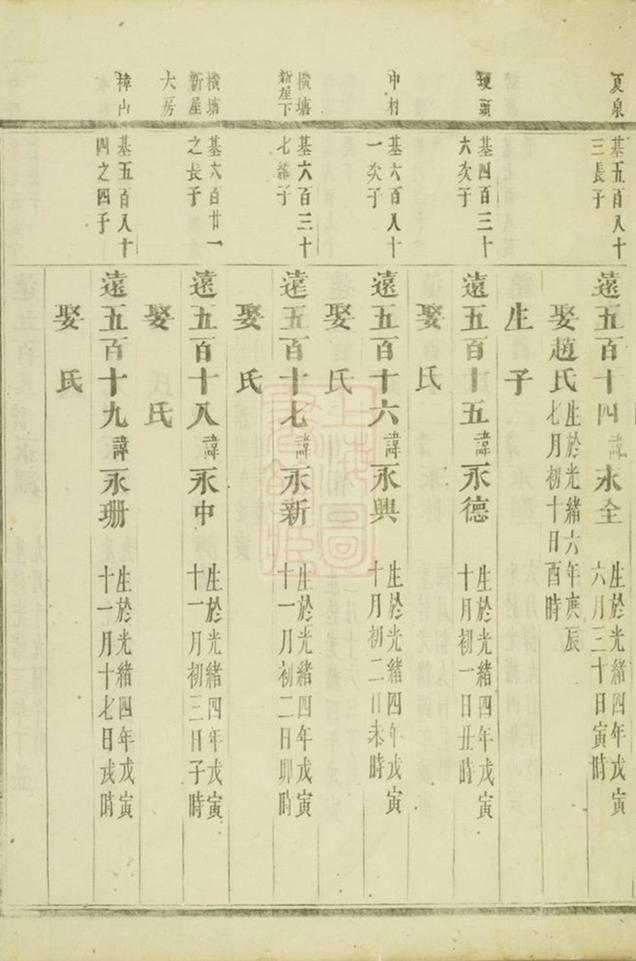 夏泉
基五百八十
三長子
遠五百十四諱永全
生於光緒四年戊寅
六月三十日寅時
娶趙氏
生於光緒六年庚辰
七月初十日酉時
生子
堘頭
基四百三十
六次子
遠五百十五諱永德
生於光緒四年戊寅
十月初一日丑時
娶氏
中村
基六百八十
一次子
遠五百十六諱永興
生於光緒四年戊寅
十月初二日未時
娶氏
橫塘
新屋下
基六百三十
七繼子
遠五百十七諱永新
生於光緒四年戊寅
十一月初二日卯時
娶氏
橫塘
新屋
基六百廿一
之長子
遠五百十八諱永中
生於光緒四年戊寅
十一月初三日子時
大房
娶氏
樟山
基五百八十
四之四子
遠五百十九諱永珊
生於光緒四年戊寅
十一月十七日戌時
娶氏